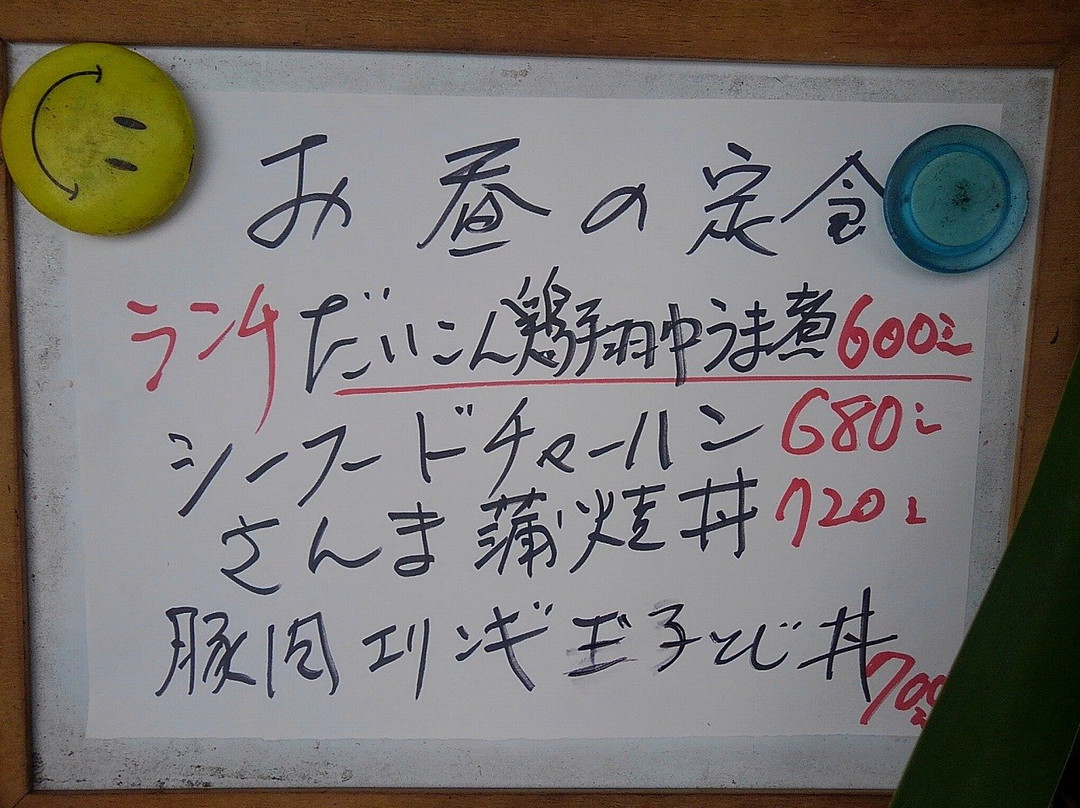 お昼の定食
ランチ だいこん鶏手羽中うま煮 600
シーフードチャーハン 680
さんま蒲焼丼 720
豚肉エリンギ玉子とじ丼 700